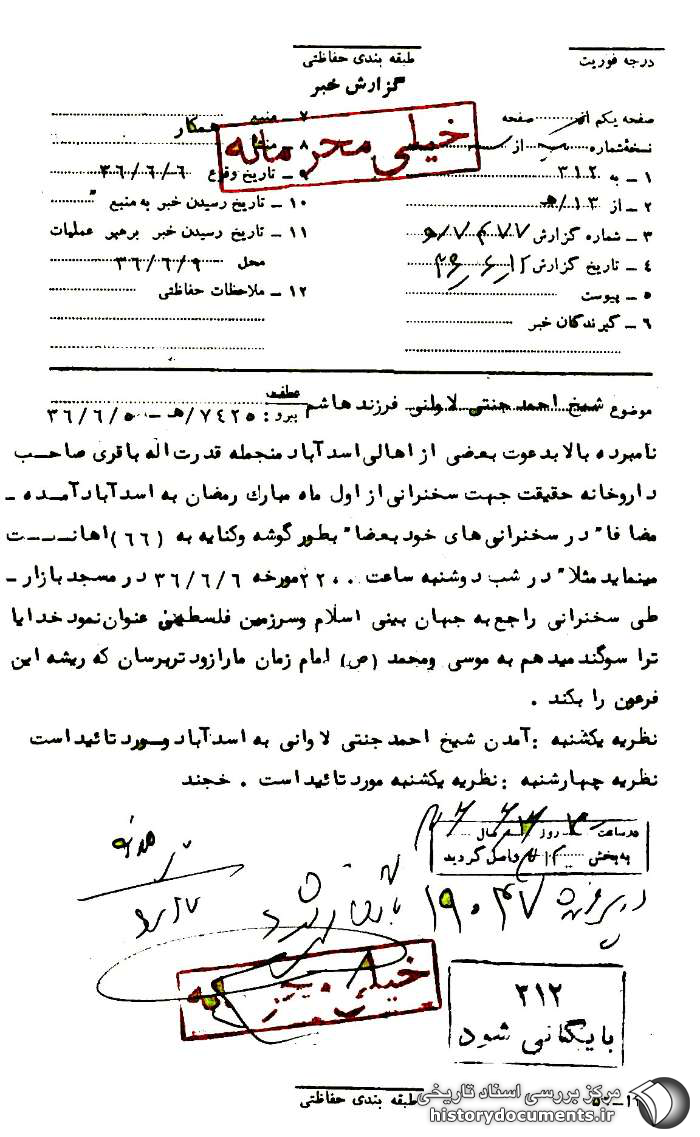 درجه فوریت
طبقه بندی حفاظتی
گزارش خبر
صفحه یکم از صفحه
نسخه شماره از
۱ – به ۳۱۲
۲ – از ۱۳/هـ
۳ – شماره گزارش
۴ – تاریخ گزارش
۵ – پیوست
۶ – گیرندگان خبر
۷ – منبع همکار
۸ – منشأ
۹ – تاریخ وقوع ۳۶/۶/۶
۱۰ – تاریخ رسیدن خبر به منبع "
۱۱ – تاریخ رسیدن خبر برهبر عملیات
محل ۳۶/۶/۹
۱۲ – ملاحظات حفاظتی
خیلی محرمانه
موضوع شیخ احمد جنتی لاوانی فرزند هاشم
عطف
پیرو : ۷۴۲۵/هـ – ۳۶/۶/۵
نامبرده بالا بدعوت بعضی از اهالی اسدآباد منجمله قدرت اله باقری صاحب
داروخانه حقیقت جهت سخنرانی از اول ماه مبارك رمضان به اسدآباد آمده –
مضافا" در سخنرانی های خود بعضا" بطور گوشه وکنایه به (۶۶) اهانت
مینماید مثلا" در شب دوشنبه ساعت ۲۲۰۰ مورخه ۳۶/۶/۶ در مسجد بازار –
طی سخنرانی راجع به جهان بینی اسلام وسرزمین فلسطین عنوان نمود خدایا
ترا سوگند میدهم به موسی ومحمد (ص) امام زمان مارا زودتر برسان که ریشه این
فرعون را بکند .
نظریه یکشنبه : آمدن شیخ احمد جنتی لاوانی به اسدآباد مورد تائید است
نظریه چهارشنبه : نظریه یکشنبه مورد تائید است . خجند
در ساعت روز سال
به بخش ۳۱۲ واصل گردید
۱۹۰۴۷
خیلی
۳۱۲
بایگانی شود
طبقه بندی حفاظتی
مرکز بررسی اسناد تاریخی
historydocuments.ir